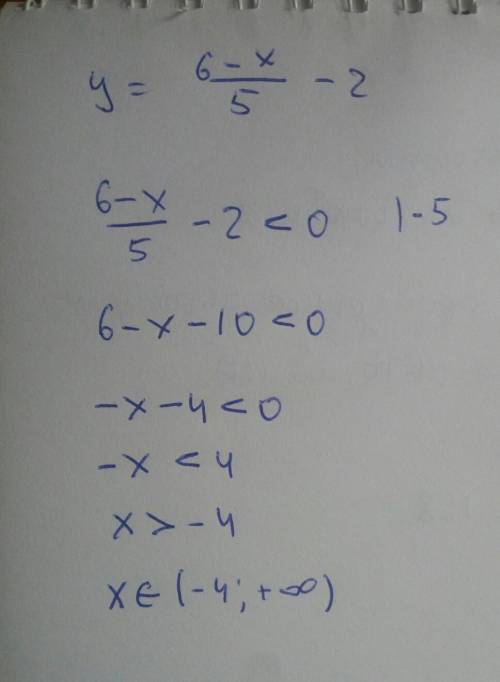 y = (6 - x)/5 - 2
(6 - x)/5 - 2 < 0 |·5
6 - x - 10 < 0
-x - 4 < 0
-x < 4
x > -4
x ∈ (-4; +∞)